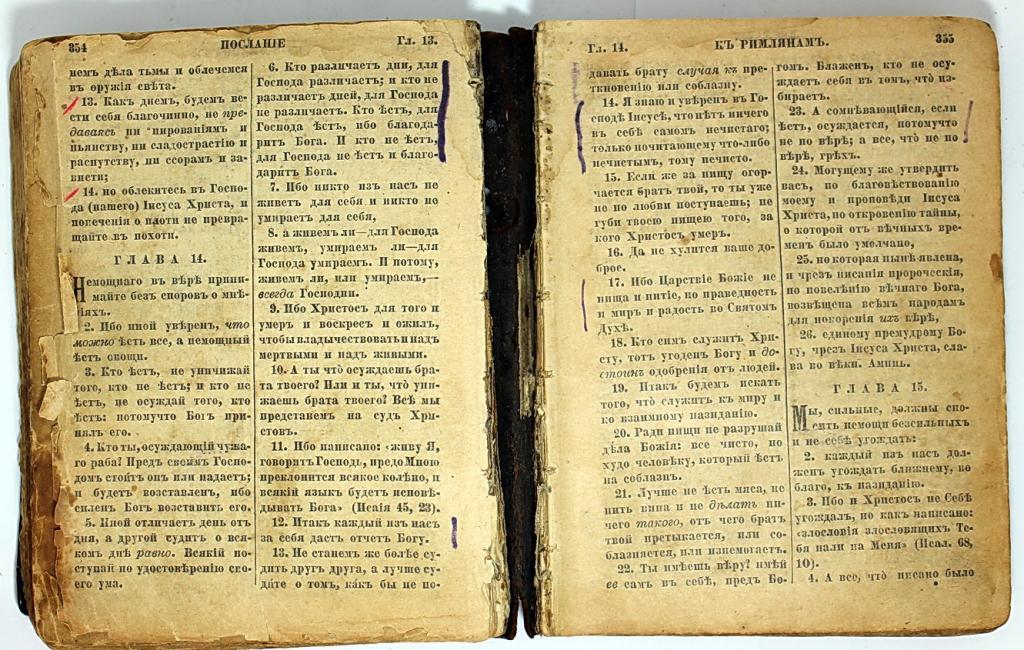 354 ПОСЛАНІЕ Гл. 13.
немъ дѣла тьмы и облечемся
въ оружія свѣта.
13. Какъ днемъ, будемъ ве-
сти себя благочинно, не пре-
даваясь ни пированіямъ и
пьянству, ни сладострастію и
распутству, ни ссорамъ и за-
висти;
14. но облекитесь въ Госпо-
да (нашего) Іисуса Христа, и
попеченія о плоти не превра-
щайте въ похоти.
ГЛАВА 14.
Немощнаго въ вѣрѣ прини-
майте безъ споровъ о мнѣ-
ніяхъ.
2. Ибо иной увѣренъ, что
можно ѣсть все, а немощный
ѣстъ овощи.
3. Кто ѣстъ, не уничижай
того, кто не ѣстъ; и кто не
ѣстъ, не осуждай того, кто
ѣстъ: потомучто Богъ при-
нялъ его.
4. Кто ты, осуждающій чужа-
го раба? Предъ своимъ Госпо-
домъ стоитъ онъ или падаетъ;
и будетъ возставленъ, ибо
силенъ Богъ возставить его.
5. Иной отличаетъ день отъ
дня, а другой судитъ о вся-
комъ днѣ равно. Всякій по-
ступай по удостовѣренію сво-
его ума.
6. Кто различаетъ дни, для
Господа различаетъ; и кто не
различаетъ дней, для Господа
не различаетъ. Кто ѣстъ, для
Господа ѣстъ, ибо благода-
ритъ Бога. И кто не ѣстъ,
для Господа не ѣстъ и благо-
даритъ Бога.
7. Ибо никто изъ насъ не
живетъ для себя и никто не
умираетъ для себя,
8. а живемъ ли—для Господа
живемъ, умираемъ ли—для
Господа умираемъ. И потому,
живемъ ли, или умираемъ,—
всегда Господни.
9. Ибо Христосъ для того и
умеръ и воскресъ и ожилъ,
чтобы владычествовать и надъ
мертвыми и надъ живыми.
10. А ты чтò осуждаешь бра-
та твоего? Или и ты, чтò уни-
жаешь брата твоего? Всѣ мы
предстанемъ на судъ Хри-
стовъ.
11. Ибо написано: «живу Я,
говоритъ Господь, предо Мною
преклонится всякое колѣно, и
всякій языкъ будетъ исповѣ-
дывать Бога» (Исаія 45, 23).
12. Итакъ каждый изъ насъ
за себя дастъ отчетъ Богу.
13. Не станемъ же болѣе су-
дить другъ друга, а лучше су-
дите о томъ, какъ бы не по-
Гл. 14. КЪ РИМЛЯНАМЪ. 355
давать брату случая къ пре-
ткновенію или соблазну.
14. Я знаю и увѣренъ въ Го-
сподѣ Іисусѣ, что нѣтъ ничего
въ себѣ самомъ нечистаго;
только почитающему что-либо
нечистымъ, тому нечисто.
15. Если же за пищу огор-
чается братъ твой, то ты уже
не по любви поступаешь; не
губи твоею пищею того, за
кого Христосъ умеръ.
16. Да не хулится ваше до-
брое.
17. Ибо Царствіе Божіе не
пища и питіе, но праведность
и миръ и радость во Святомъ
Духѣ.
18. Кто симъ служитъ Хри-
сту, тотъ угоденъ Богу и до-
стоинъ одобренія отъ людей.
19. Итакъ будемъ искать
того, чтò служитъ къ миру и
ко взаимному назиданію.
20. Ради пищи не разрушай
дѣла Божія: все чисто, но
худо человѣку, который ѣстъ
на соблазнъ.
21. Лучше не ѣсть мяса, не
пить вина и не дѣлать ни-
чего такого, отъ чего братъ
твой претыкается, или со-
блазняется, или изнемогаетъ.
22. Ты имѣешь вѣру? имѣй
ее самъ въ себѣ, предъ Бо-
гомъ. Блаженъ, кто не осу-
ждаетъ себя въ томъ, чтò из-
бираетъ.
23. А сомнѣвающійся, если
ѣстъ, осуждается, потомучто
не по вѣрѣ; а все, чтò не по
вѣрѣ, грѣхъ.
24. Могущему же утвердить
васъ, по благовѣствованію
моему и проповѣди Іисуса
Христа, по откровенію тайны,
о которой отъ вѣчныхъ вре-
менъ было умолчано,
25. но которая нынѣ явлена,
и чрезъ писанія пророческія,
по повелѣнію вѣчнаго Бога,
возвѣщена всѣмъ народамъ
для покоренія ихъ вѣрѣ,
26. единому премудрому Бо-
гу, чрезъ Іисуса Христа, сла-
ва во вѣки. Аминь.
ГЛАВА 15.
Мы, сильные, должны сно-
сить немощи безсильныхъ
и не себѣ угождать:
2. каждый изъ насъ дол-
женъ угождать ближнему, во
благо, къ назиданію.
3. Ибо и Христосъ не Себѣ
угождалъ, но какъ написано:
«злословія злословящихъ Те-
бя пали на Меня» (Псал. 68,
10).
4. А все, чтò писано было